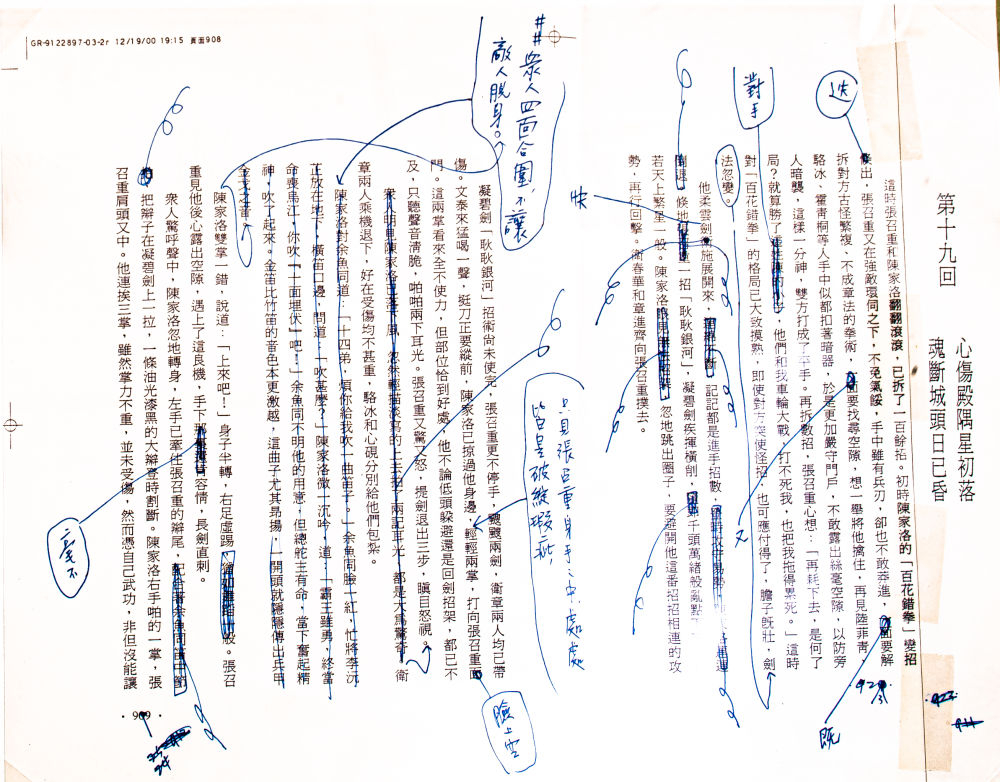 GR-9122897-03-2r 12/19/00 19:15 頁面908
第十九回
心傷殿隅星初落
魂斷城頭日已昏
這時張召重和陳家洛翻翻滾滾,已拆了一百餘招。初時陳家洛的「百花錯拳」變招
出,張召重又在強敵環伺之下,不免氣餒,手中雖有兵刃,卻也不敢莽進,面要解
拆對方古怪繁複、不成章法的拳術,面要找尋空隙,想一舉將他擒住,再見陸菲青,
駱冰、霍青桐等人手中似都扣著暗器,於是更加嚴守門戶,不敢露出絲毫空隙,以防旁
人暗襲,這樣一分神,雙方打成了平手。再拆數招,張召重心想:「再耗下去,是何了
局?就算勝了小子,他們和我車輪大戰,打不死我,也把我拖得累死。」這時
對「百花錯拳」的格局已大致摸熟,即使對方突使怪招,也可應付得了,膽子既壯,劍
法忽變。
他柔雲劍術施展開來,記記都是進手招數,
倏地一招「耿耿銀河」,凝碧劍疾揮橫削,千頭萬緒般亂點
若天上繁星一般。陳家洛忽地跳出圈子,要避開他這番招招相連的攻
勢,再行回擊。衛春華和章進齊向張召重撲去。
凝碧劍「耿耿銀河」招術尚未使完,張召重更不停手,颼颼兩劍,衛章兩人均已帶
傷。文泰來猛喝一聲,挺刀正要縱前,陳家洛已掠過他身邊,輕輕兩掌,打向張召重面
門。這兩掌看來全不使力,但部位恰到好處,他不論低頭躲避還是回劍招架,都已不
及,只聽聲音清脆,啪啪兩下耳光。張召重又驚又怒,提劍退出三步,瞋目怒視。
眾人明見陳家洛已落下風,忽然輕描淡寫的上去拍了兩記耳光,都是大為驚奇,衛
章兩人乘機退下,好在受傷均不甚重,駱冰和心硯分別給他們包紮。
陳家洛對余魚同道:「十四弟,煩你給我吹一曲笛子。」余魚同臉一紅,忙將李沅
芷放在地下,橫笛口邊,問道:「吹甚麼?」陳家洛微一沉吟,道:「霸王雖勇,終當
命喪烏江,你吹『十面埋伏』吧!」余魚同不明他的用意,但總舵主有命,當下奮起精
神,吹了起來。金笛比竹笛的音色本更激越,這曲子尤其昂揚,一開頭就隱隱傳出兵甲
金戈之音。
陳家洛雙掌一錯,說道:「上來吧!」身子半轉,右足虛踢,般。張召
重見他後心露出空隙,遇上了這良機,手下那容情,長劍直刺。
眾人驚呼聲中,陳家洛忽地轉身,左手已牽住張召重的辮尾,配合著余魚同笛中節
把辮子在凝碧劍上一拉,一條油光漆黑的大辮登時割斷。陳家洛右手啪的一掌,張
召重肩頭又中。他連挨三掌,雖然掌力不重,並未受傷,然而憑自己武功,非但沒能讓
迭
對手
##眾人四面合圍,不讓
敵人脫身。
快
又
既
只見張召重身手之中,處處
皆呈破綻瑕疵,
臉上空
毫不